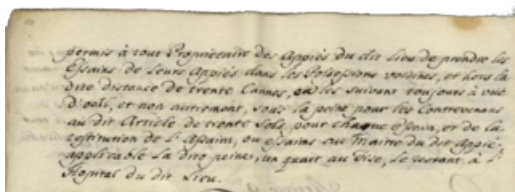 permis à tout Propriétaire des Appiés du dit Lieu de prendre les
Essains de Leurs Appiés dans les Possessions voisines, et hors la
dite distance de trente Cannes, en les Suivant toujours à vüe
d'oeil, et non autrement, sous la peine pour les Contrevenans
au dit Article de trente Sols pour chaque essain, et de la
restitution de L'Essain, ou essains au Maitre du dit Appié,
applicable La dite peine, un quart au fisc, Le restant à L'
Hopital du dit Lieu.